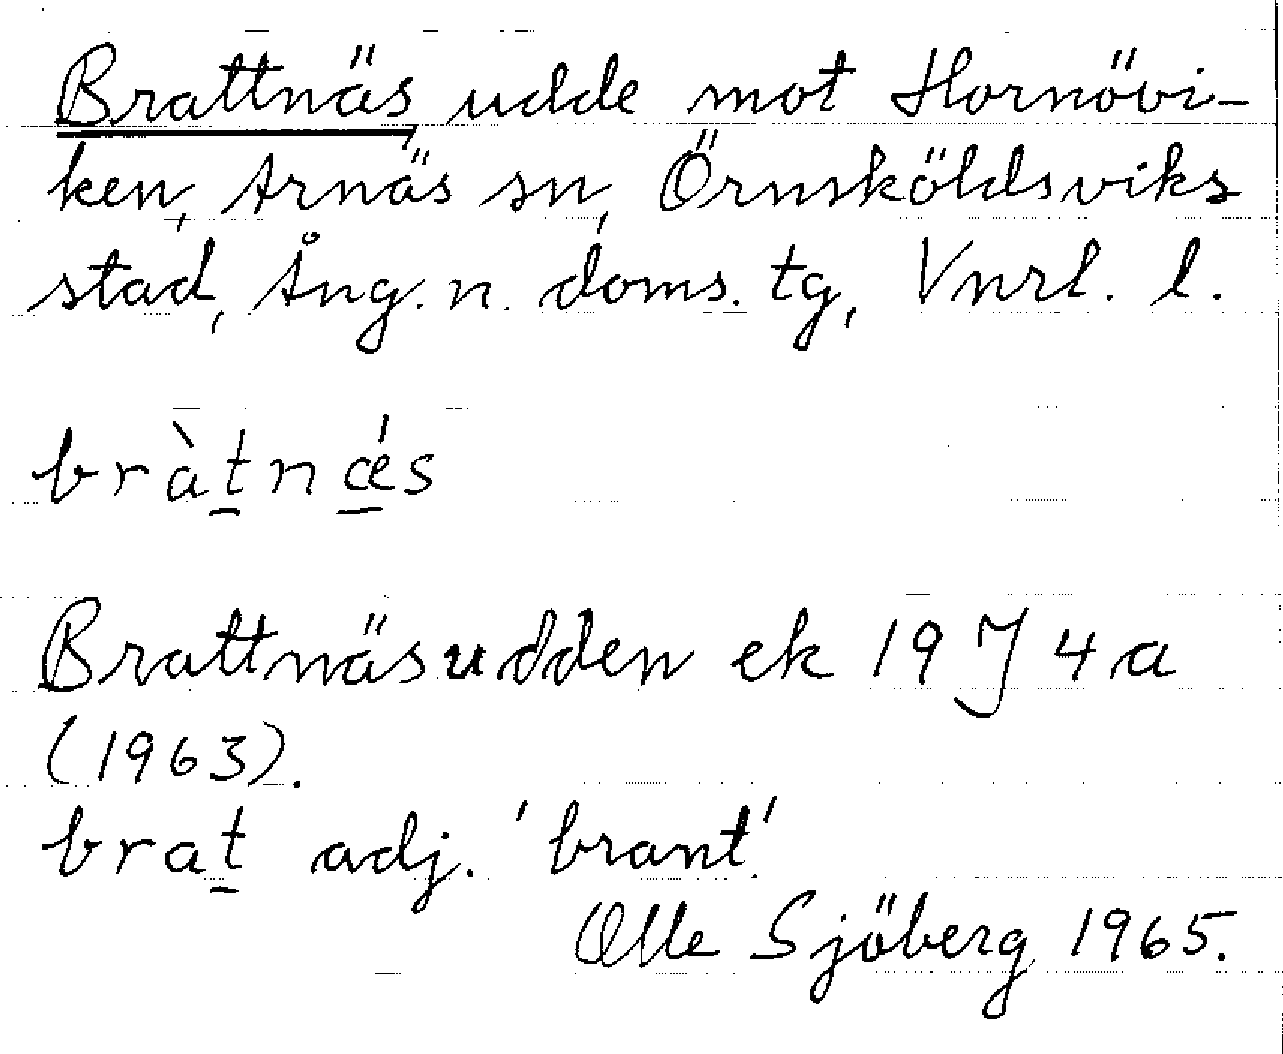 Brattnäs, udde mot Hornövi-
ken, Arnäs sn, Örnsköldsviks
stad, Ång. n. doms. tg, Vnrl. l.
bràt̲nǽ̲s
Brattnäsudden ek 19 J 4 a
(1963).
brat̲ adj. 'brant'.
Olle Sjöberg 1965.